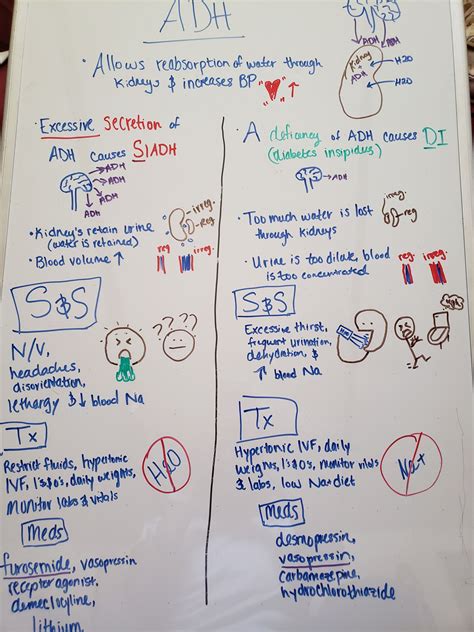 ADH
· Allows reabsorption of water through
kidneys & increases BP "♥" ↑
ADH
ADH
Kidney
ADH
H2O
H2O
Excessive Secretion of
ADH causes SIADH
ADH
ADH
ADH
ADH
ADH
· Kidney's retain urine
(water is retained)
· Blood volume ↑
irreg.
reg
reg
irreg.
S&S
N/V,
headaches,
disorientation,
lethargy & ↓ blood Na
????
Tx
Restrict fluids, hypertonic
IVF, I's&O's, daily weights,
monitor labs & vitals
H2O
Meds
furosemide, vasopressin
receptor agonist,
demeclocyline,
lithium
A deficiancy of ADH causes DI
(diabetes insipidus)
ADH
· Too much water is lost
through kidneys
irreg.
reg
· Urine is too dilute, blood
is too concentrated
reg.
irreg.
S&S
Excessive thirst,
frequent urination,
dehydration, &
↑ blood Na
Tx
Hypertonic IVF, daily
weights, I's&O's, monitor vitals
& labs, low Na+ diet
Na+
Meds
desmopressin,
vasopressin,
carbamazepine,
hydrochlorothiazide